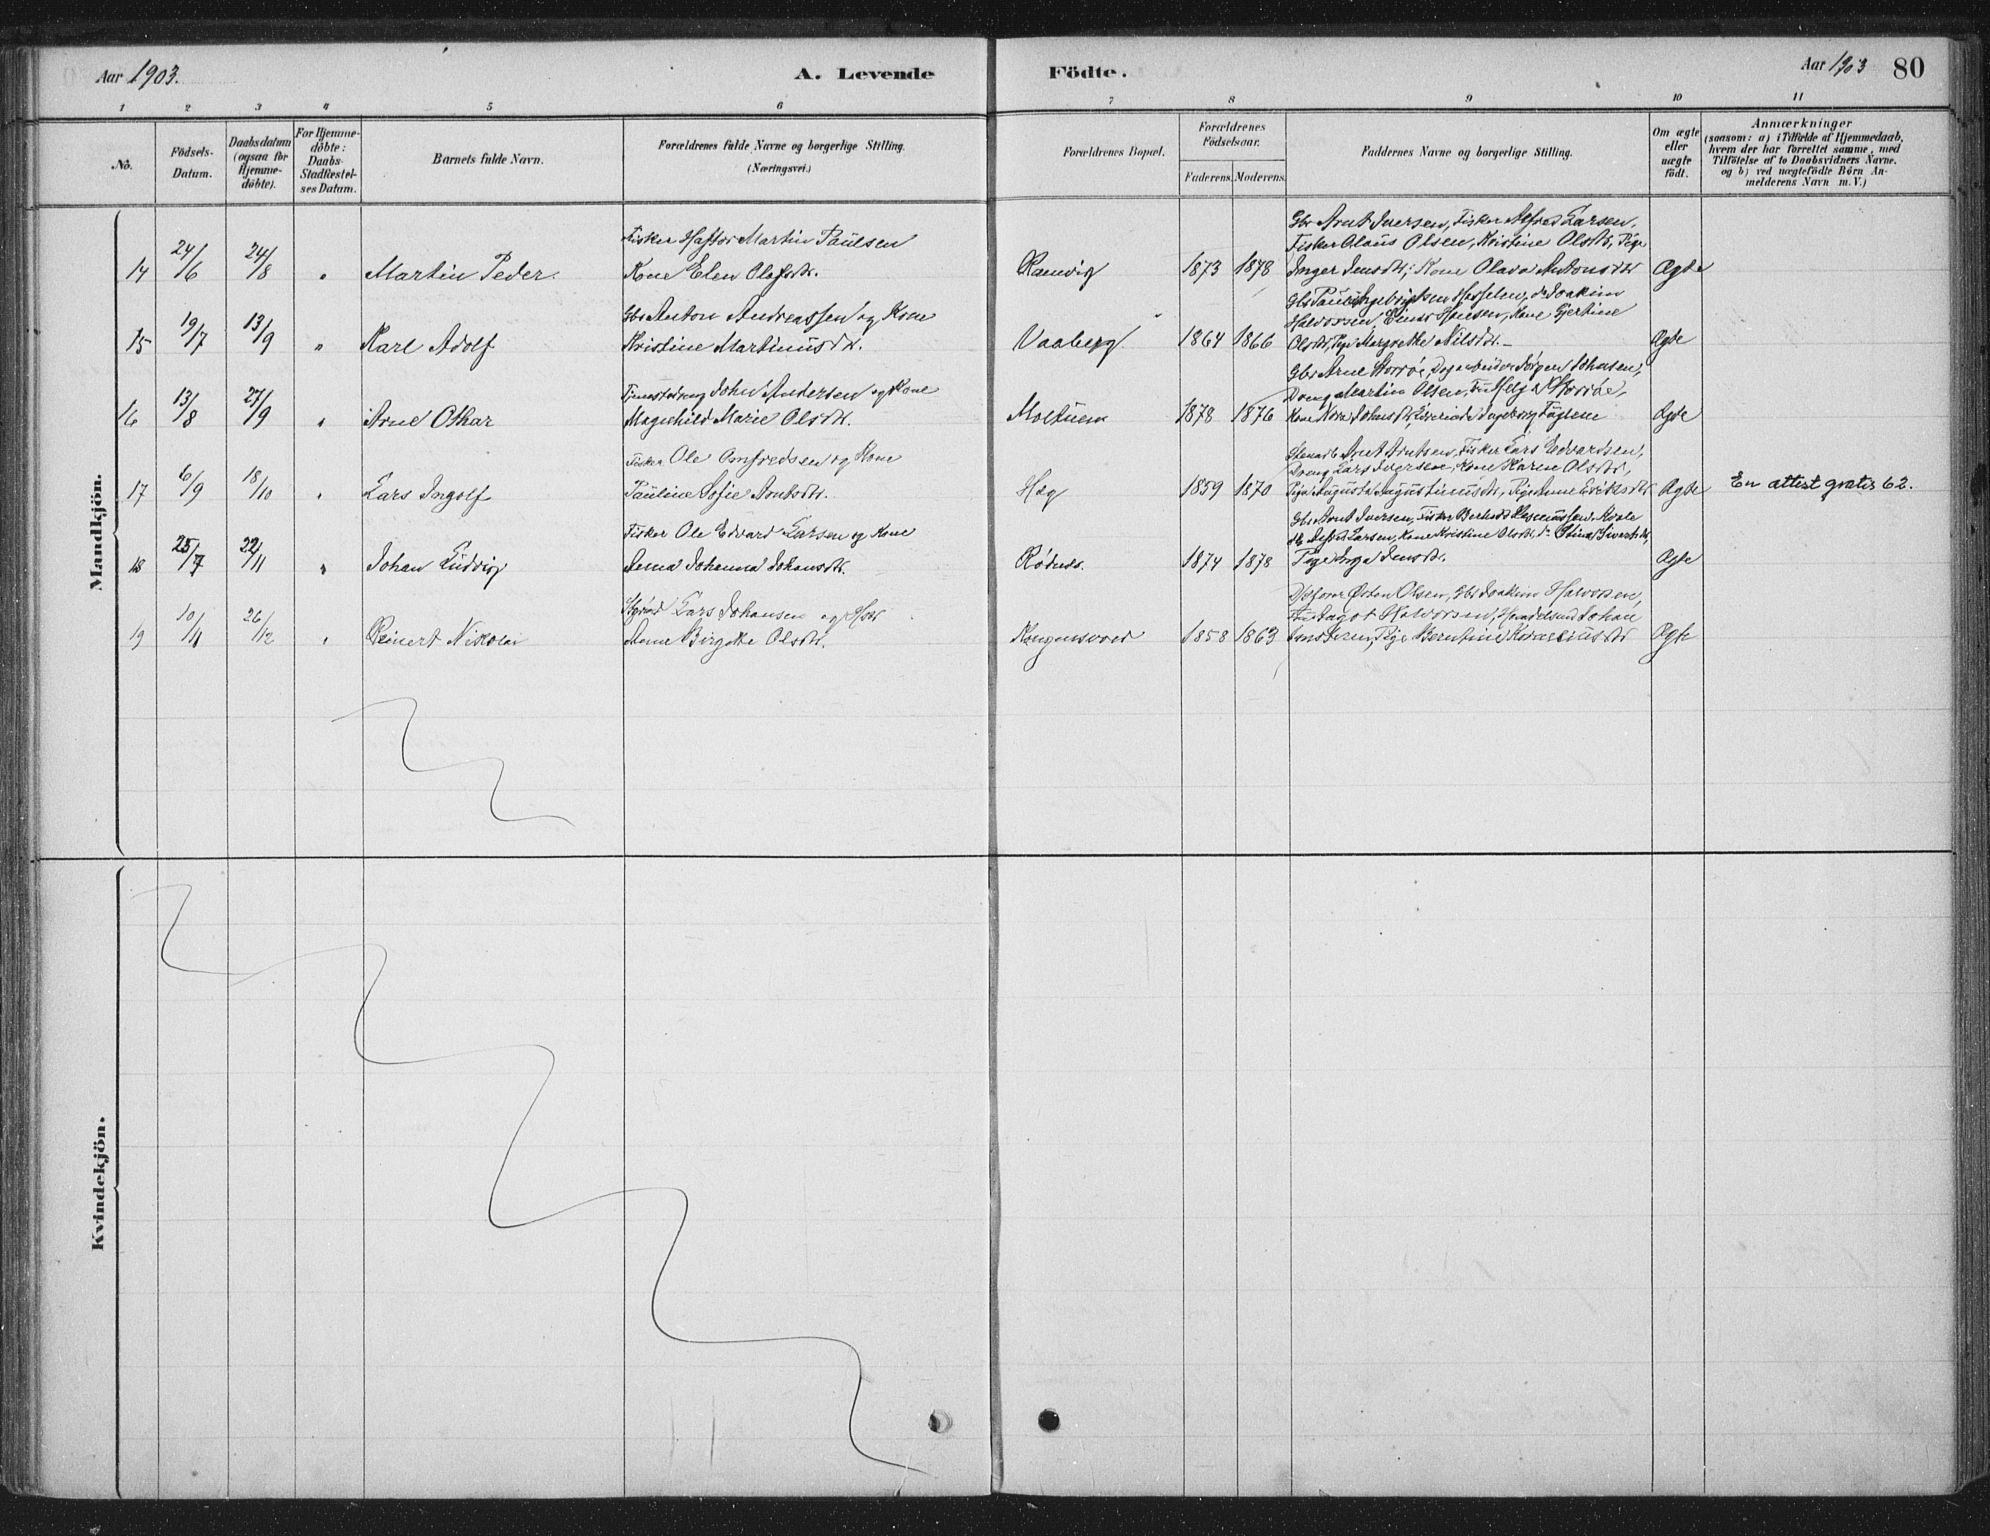 Aar 1903.
A. Levende
Födte.
Aar 1903
80
1 2 3 4 5 6 7 8 9 10 11
No.
Födsels-
Datum.
Daabsdatum
(ogsaa för
Hjemme-
döbte).
For Hjemme-
döbte:
Daabs-
Stadfæstel-
ses Datum.
Barnets fulde Navn.
Forældrenes fulde Navne og borgerlige Stilling.
(Næringsvei.)
Forældrenes Bopæl.
Forældrenes
Födselsaar.
Faderens. Moderens.
Faddernes Navne og borgerlige Stilling.
Om ægte
eller
uægte
födt.
Anmærkninger
(saasom: a) i Tilfælde af Hjemmedaab,
hvem der har forrettet samme, med
Tilföielse af to Daabsvidners Navne.
og b) ved uægtefödte Börn An-
melderens Navn m. V.)
Mandkjön.
14 24/6 24/8 " Martin Peder.
Fisker Haftor Martin Paulsen
Kone Elen Olafsdtr.
Ramvig 1873 1878
Gbr Arnt Iversen, Fisker Alfred Larsen,
Fisker Olaus Olsen, Kristine Olsdtr, Pige
Inger Jensdtr, Kone Olava Antonsdtr
Ægte
15 19/7 13/9 " Karl Adolf
Gbr Anton Andreassen og Kone
Kristine Martinusdtr.
Vaaberg 1864 1866
Halvorsen, Einar Hansen, Kone Gjertine
Olsdtr, Pige Margrethe Nilsdtr.
Ægte
16 13/8 27/9 " Arne Othar
John Andersen og Kone
Magnhild Marie Olsdtr.
1878 1876
Gbr Arne Storröe, Jörgen Johansen,
Dreng Martin Olsen,
Kone Nora Johansdtr, Ingeborg
Ægte
17 6/9 18/10 " Lars Ingolf
Fisker Ole Arnfredsen og Kone
Pauline Sofie Arntsdtr.
Hæg 1859 1870
Arnt Arntsen, Fisker Lars Edvardsen,
Dreng Lars Iversen, Kone Karen Olsdtr,
Pige Augusta Augustinusdtr, Pige Anne Eriksdtr
Ægte
En attest gratis 62.
18 25/7 22/11 " Johan Ludvig
Fisker Ole Edvard Larsen og Kone
Anna Johanna Johansdtr.
Rödnes. 1874 1878
Gbr Arnt Iversen, Fisker Rasmussen,
Alfred Larsen, Kone Kristine Olsdtr, do Stina Sivertsdtr,
Pige Inga Jensdtr.
Ægte
19 10/11 26/12 " Reinert Nikolai
Lars Johansen og Hstr
Anne Birgitte Olsdtr.
1858 1863
Östen Olsen, Gbr Joakim Halvorsen,
Halvorsen, Johan
Pige Berntine
Ægte
Kvindekjön.